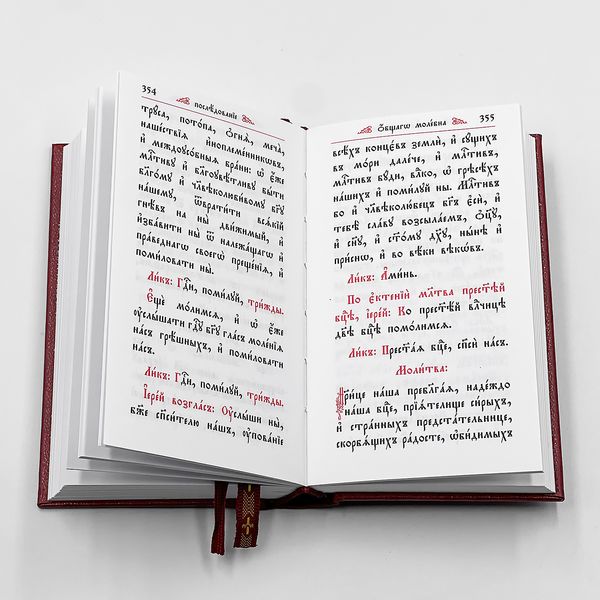 354
послѣ́дованїе
трꙋ́са, пото́па, ѻ҆гнѧ̀, меча̀,
наше́ствїѧ и҆ноплеме́нникѡвъ,
и҆ междоꙋсо́бныѧ бра́ни: ѡ҆ є҆́же
млⷭ҇тивꙋ и҆ бл҃гоꙋвѣ́тливꙋ бы́ти
бл҃го́мꙋ и҆ чл҃вѣколюби́вомꙋ бг҃ꙋ
на́шемꙋ, ѿврати́ти всѧ́кїй
гнѣ́въ на ны̀ дви́жимый, и҆
и҆зба́вити ны̀ ѿ належа́щагѡ и҆
пра́веднагѡ своегѡ̀ преще́нїѧ, и҆
поми́ловати ны̀.
Ли́къ: Гдⷭ҇и, поми́лꙋй, три́жды.
Е҆щѐ мо́лимсѧ, и҆ ѡ҆ є҆́же
ᲂу҆слы́шати гдⷭ҇ꙋ бг҃ꙋ гла́съ моле́нїѧ
на́съ грѣ́шныхъ, и҆ поми́ловати
на́съ.
Ли́къ: Гдⷭ҇и, поми́лꙋй, три́жды.
І҆ере́й возгла́съ: Оу҆слы́ши ны̀,
бж҃е сп҃си́телю на́шъ, ᲂу҆пова́нїе
ѻ҆́бщагѡ моле́бна
355
всѣ́хъ конце́въ землѝ, и҆ сꙋ́щихъ
въ мо́ри дале́че, и҆ млⷭ҇тивъ,
млⷭ҇тивъ бꙋ́ди, влⷣко, ѡ҆ грѣсѣ́хъ
на́шихъ и҆ поми́лꙋй ны̀. Млⷭ҇тивъ
бо и҆ чл҃вѣколю́бецъ бг҃ъ є҆сѝ, и҆
тебѣ̀ сла́вꙋ возсыла́емъ, ѻ҆ц҃ꙋ̀,
и҆ сн҃ꙋ, и҆ ст҃о́мꙋ дх҃ꙋ, ны́нѣ и҆
при́снѡ, и҆ во вѣ́ки вѣкѡ́въ.
Ли́къ: А҆ми́нь.
По є҆ктенїѝ мл҃тва прест҃ѣ́й
бцⷣѣ, і҆ере́й: Ко прест҃ѣ́й влⷣчицѣ
дв҃ѣ бцⷣѣ помо́лимсѧ.
Ли́къ: Прест҃а́ѧ бцⷣе, сп҃сѝ на́съ.
Моли́тва:
Цр҃и́це на́ша пребл҃га́ѧ, наде́ждо
на́ша бцⷣе, прїѧ́телище си́рыхъ,
и҆ стра́нныхъ предста́тельнице,
скорбѧ́щихъ ра́досте, ѡ҆би́димыхъ